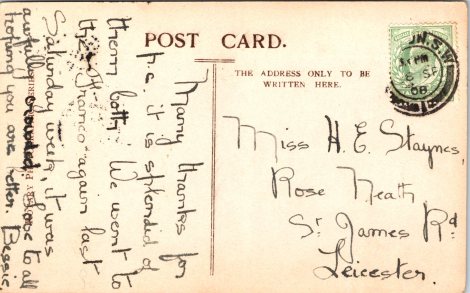 POST CARD.
THE ADDRESS ONLY TO BE
WRITTEN HERE.
Many thanks for
p.c. it is splendid of
them both. We went to
the Franco again last
Saturday week, it was
awfully crowded. Love to all
hoping you are better. Bessie.
Miss H. E. Staynes,
Rose Neath
St James Rd
Leicester.
N.S.W
SP
08